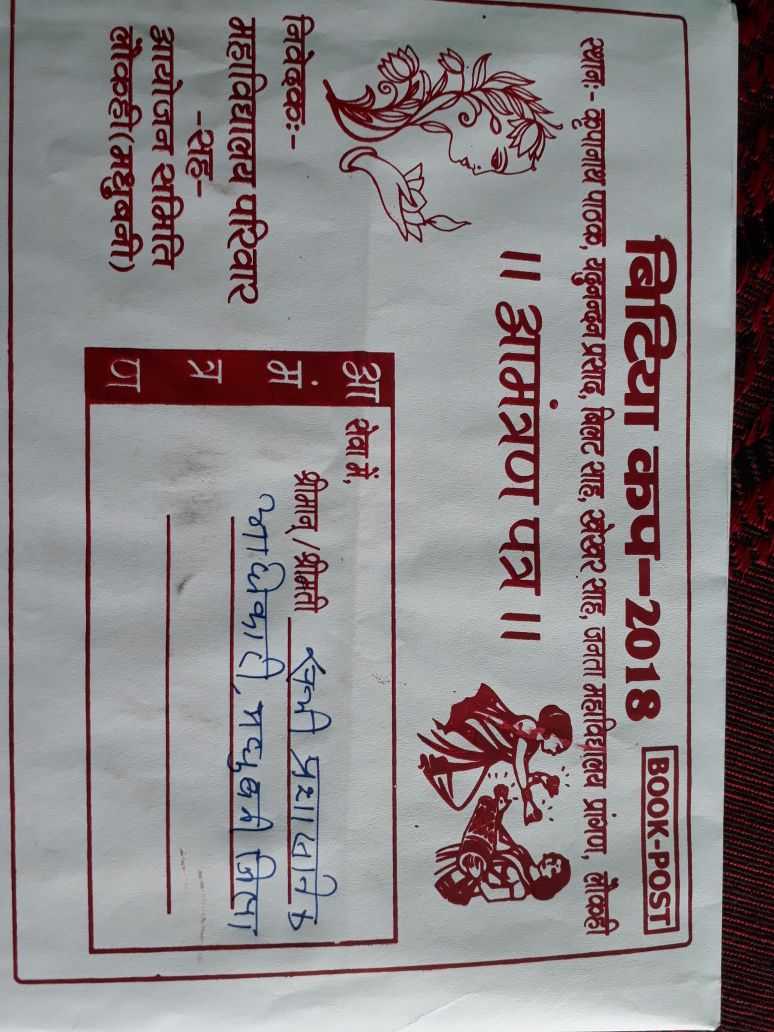 बिटिया कप-2018
BOOK-POST
स्थान:- कृपानाथ पाठक, यदुनन्दन प्रसाद, बिलट साह, शेखर साह, जनता महाविद्यालय प्रांगण, लौकही
।। आमंत्रण पत्र ।।
निवेदक:-
महाविद्यालय परिवार
-सह-
आयोजन समिति
लौकही (मधुबनी)
आ
मं
त्र
ण
सेवा में,
श्रीमान् / श्रीमती सभी प्रशासनिक
पदाधिकारी, मधुबनी जिला